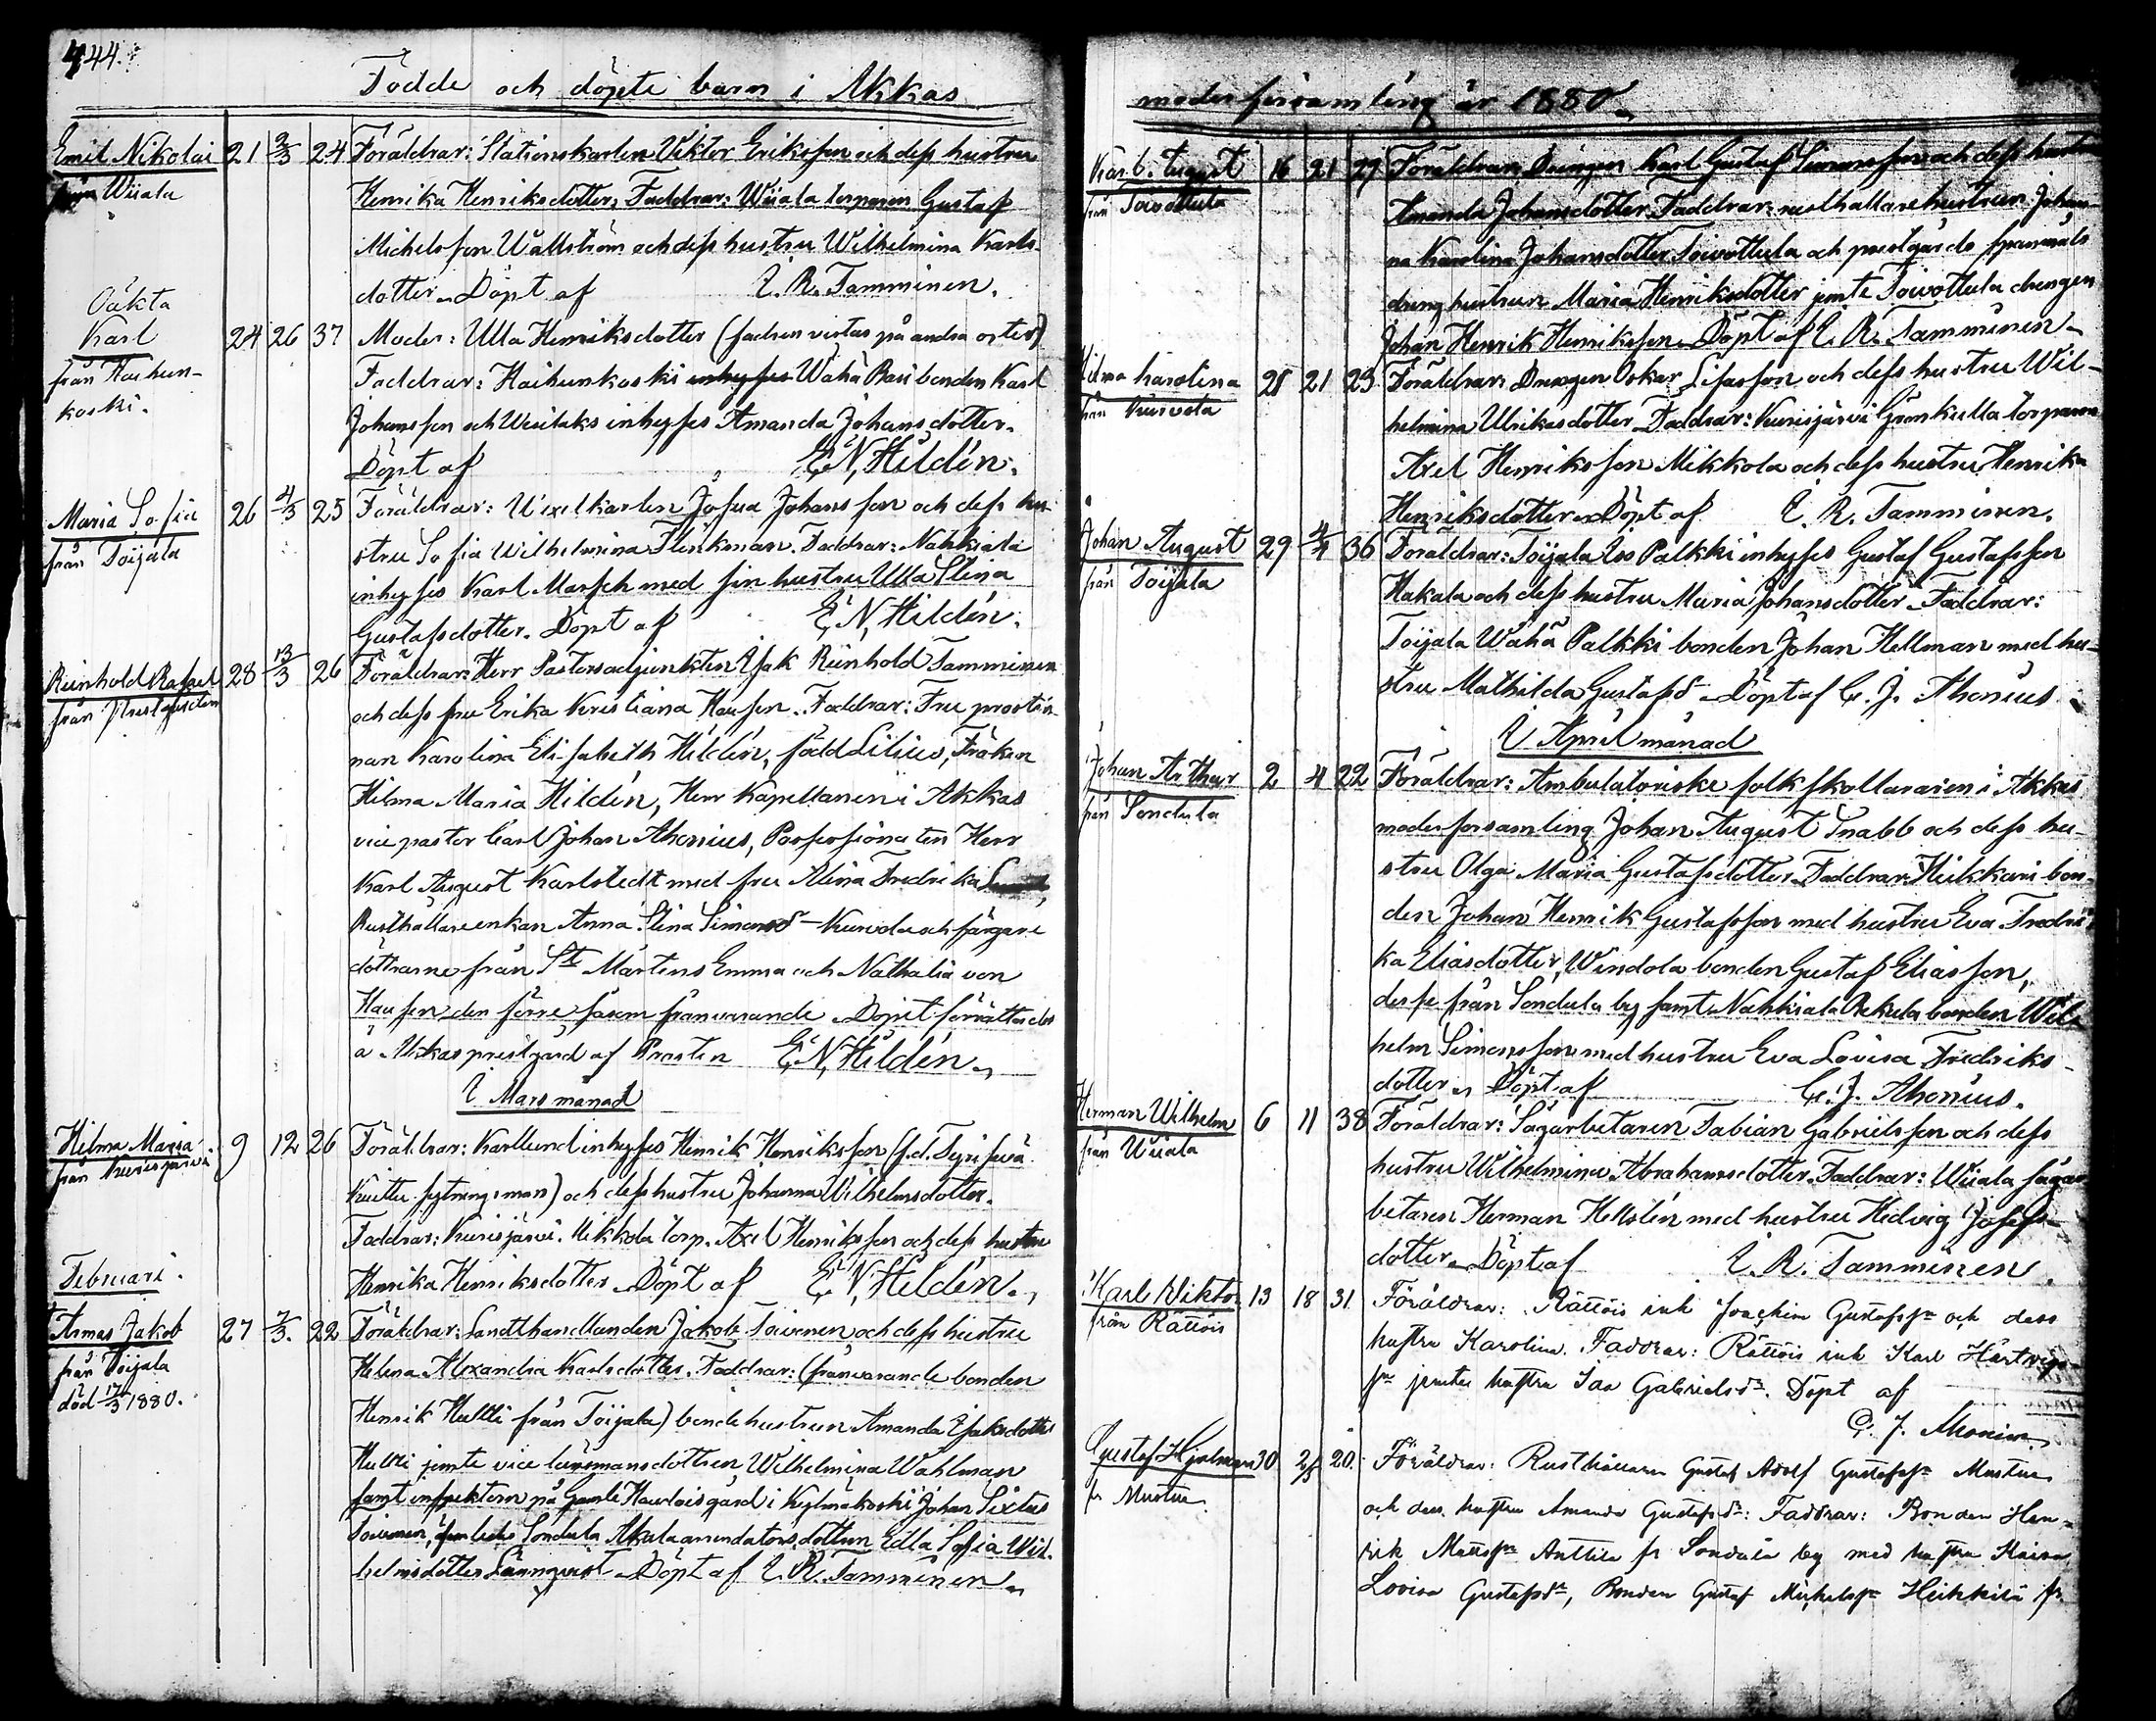 444.
Födde och döpte barn i Akkas
Emil Nikolai 21 2/3 24 Föräldrar: Stationskarlen Viktor Eriksson och dess hustru
från Wiiala Henrika Henriksdotter, Faddrar: Wiiala torparen Gustaf
Michelsson Wallström och dess hustru Wilhelmina Karls-
dotter. Döpt af I. R. Tamminen.
Oäkta
Karl 24 26 37 Moder: Ulla Henriksdotter (fadren vistas på andra orter)
från Haihun- Faddrar: Haihunkoski inhyses Wähä Rasi bonden Karl
koski. Johansson och inhyses Amanda Johansdotter.
Döpt af E. N. Hildén.
Maria Sofia 26 4/3 25 Föräldrar: Wixelkarlen Josua Johansson och dess hu-
från Toijala stru Sofia Wilhelmina Flinkman. Faddrar: Nahkiala
inhyses Karl Marsch med sin hustru Ulla Stina
Gustafsdotter. Döpt af E. N. Hildén.
Reinhold Rafael 28 13/3 26 Föräldrar: Herr Pastorsadjunkten Isak Reinhold Tamminen
från Prestgården och dess fru Erika Kristiana Hausen. Faddrar: Fru prostin-
nan Karolina Elisabeth Hildén, född Lilius, Fröken
Hilma Maria Hildén, Herr Kapellanen i Akkas
vice pastor Carl Johan Ahonius, Possessionaten Herr
Karl August Karlstedt med fru Alina Fredrika
Rusthållareenkan Anna Stina Simonsd. Kurvola och färgare
döttrarne från St. Mårtens Emma och Nathalia von
Hausen den förre såsom frånvarande. Dopet förrättades
å Akkas prestgård af Prosten E. N. Hildén.
I Mars månad
Hilma Maria 9 12 26 Föräldrar: Karllund inhyses Henrik Henriksson (f.d.
från Kurisjärvi sytningsman) och dess hustru Johanna Wilhelmsdotter.
Faddrar: Kurisjärvi Mikkola torp. Axel Henriksson och dess hustru
Henrika Henriksdotter. Döpt af E. N. Hildén.
Februari.
Armas Jakob 27 7/3. 22 Föräldrar: Landthandlanden Jakob Toivonen och dess hustru
från Toijala Helena Alexandra Karlsdotter. Faddrar: (frånvarande bonden
död 17/3 1880. Henrik Hultti från Toijala) bondehustrun Amanda Isaksdotter
Hultti jemte vice länsmansdottren Wilhelmina Wahlman
samt inspektorn på Gamle gård i Kylmäkoski Johan Sixtus
Toivonen, Sondula Akala arrendatorsdottren Edla Sofia Wil-
helmsdotter Lönnqvist. Döpt af I. R. Tamminen.
moderförsamling år 1880.
Karl August 16 21 29 Föräldrar: Drängen Karl Gustaf Simonsson och dess hustru
från Toivottula Amanda Johansdotter. Faddrar: rusthållarehustrun Johan-
na Karolina Johansdotter Toivottula och prestgårds spannmåls
dreng hustrun Maria Henriksdotter jemte Toivottula drengen
Johan Henrik Henriksson. Döpt af I. R. Tamminen.
Hilma Karolina 21 21 23 Föräldrar: Drengen Oskar och dess hustru Wil-
från Kurvola helmina Ulriksdotter. Faddrar: Kurisjärvi Grönkulla torparen
Axel Henriksson Mikkola och dess hustru Henrika
Henriksdotter. Döpt af I. R. Tamminen.
Johan August 29 2/4 36 Föräldrar: Toijala Iso Palkki inhyses Gustaf Gustafsson
från Toijala Hakala och dess hustru Maria Johansdotter. Faddrar:
Toijala Wähä Palkki bonden Johan Hellman med hu-
stru Mathilda Gustafsd. Döpt af C. J. Ahonius
I April månad
Johan Arthur 2 4 22 Föräldrar: Ambulatoriske folkskolläraren i Akkas
från Sondula moderförsamling Johan August Snabb och dess hu-
stru Olga Maria Gustafsdotter. Faddrar: Heikkari bon-
den Johan Henrik Gustafsson med hustru Eva Fredri-
ka Eliasdotter, Windola bonden Gustaf Eliasson,
desse från Sondula by samt Nahkiala Rekula bonden Wil-
helm Simonsson med hustru Eva Lovisa Fredriks-
dotter. Döpt af C. J. Ahonius.
Herman Wilhelm 6 11 38 Föräldrar: Sågarbetaren Fabian Gabrielsson och dess
från Wiiala hustru Wilhelmina Abrahamsdotter. Faddrar: Wiiala sågar-
betaren Herman Hellstén med hustru Hedvig Josefs-
dotter. Döpt af I. R. Tamminen.
Karl Wiktor 13 18 31 Föräldrar: Rättöis inh Joachim Gustafsson och dess
från Rättöis hustru Karolina. Faddrar: Rättöis inh Karl Hartvigs-
son jemte hustru Ida Gabrielsdr. Döpt af
C. J. Ahonius.
Gustaf Hjalmar 30 2/5 20. Föräldrar: Rusthållaren Gustaf Adolf Gustafsson Mustue
fr Mustue och dess hustru Amanda Gustafsdr: Faddrar: Bonden Hen-
rik Mattsson Anttila fr Sondula by med hustru Kaisa
Lovisa Gustafsdr, Bonden Gustaf Michelsson Heikkilä fr.